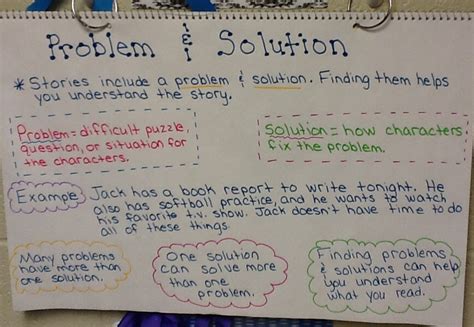 Problem & Solution
* Stories include a problem & solution. Finding them helps
you understand the story.
Problem = difficult puzzle,
question, or situation for
the characters.
Solution = how characters
fix the problem.
Example Jack has a book report to write tonight. He
also has softball practice, and he wants to watch
his favorite t.v. show. Jack doesn't have time to do
all of these things.
Many problems
have more than
one solution.
One solution
can solve more
than one
problem.
Finding problems
& solutions can help
you understand
what you read.